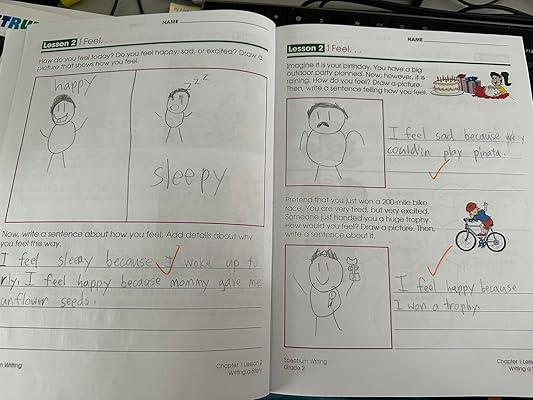 NAME
Lesson 2 I Feel. . .
How do you feel today? Do you feel happy, sad, or excited? Draw a
picture that shows how you feel.
happy
zzz
sleepy
Now, write a sentence about how you feel. Add details about why
you feel this way.
I feel sleapy because I woke up to
rly. I feel happy because mommy gave me
unflower seeds.
m Writing
Chapter 1 Lesson 2
Writing a Story
NAME
Lesson 2 I Feel. . .
Imagine it is your birthday. You have a big
outdoor party planned. Now, however, it is
raining. How do you feel? Draw a picture.
Then, write a sentence telling how you feel.
I feel sad because
couldin play pinata.
Pretend that you just won a 200-mile bike
race. You are very tired, but very excited.
Someone just handed you a huge trophy.
How would you feel? Draw a picture. Then,
write a sentence about it.
I feel happy because
I won a trophy.
Spectrum Writing
Grade 2
Chapter 1 Lesson
Writing a